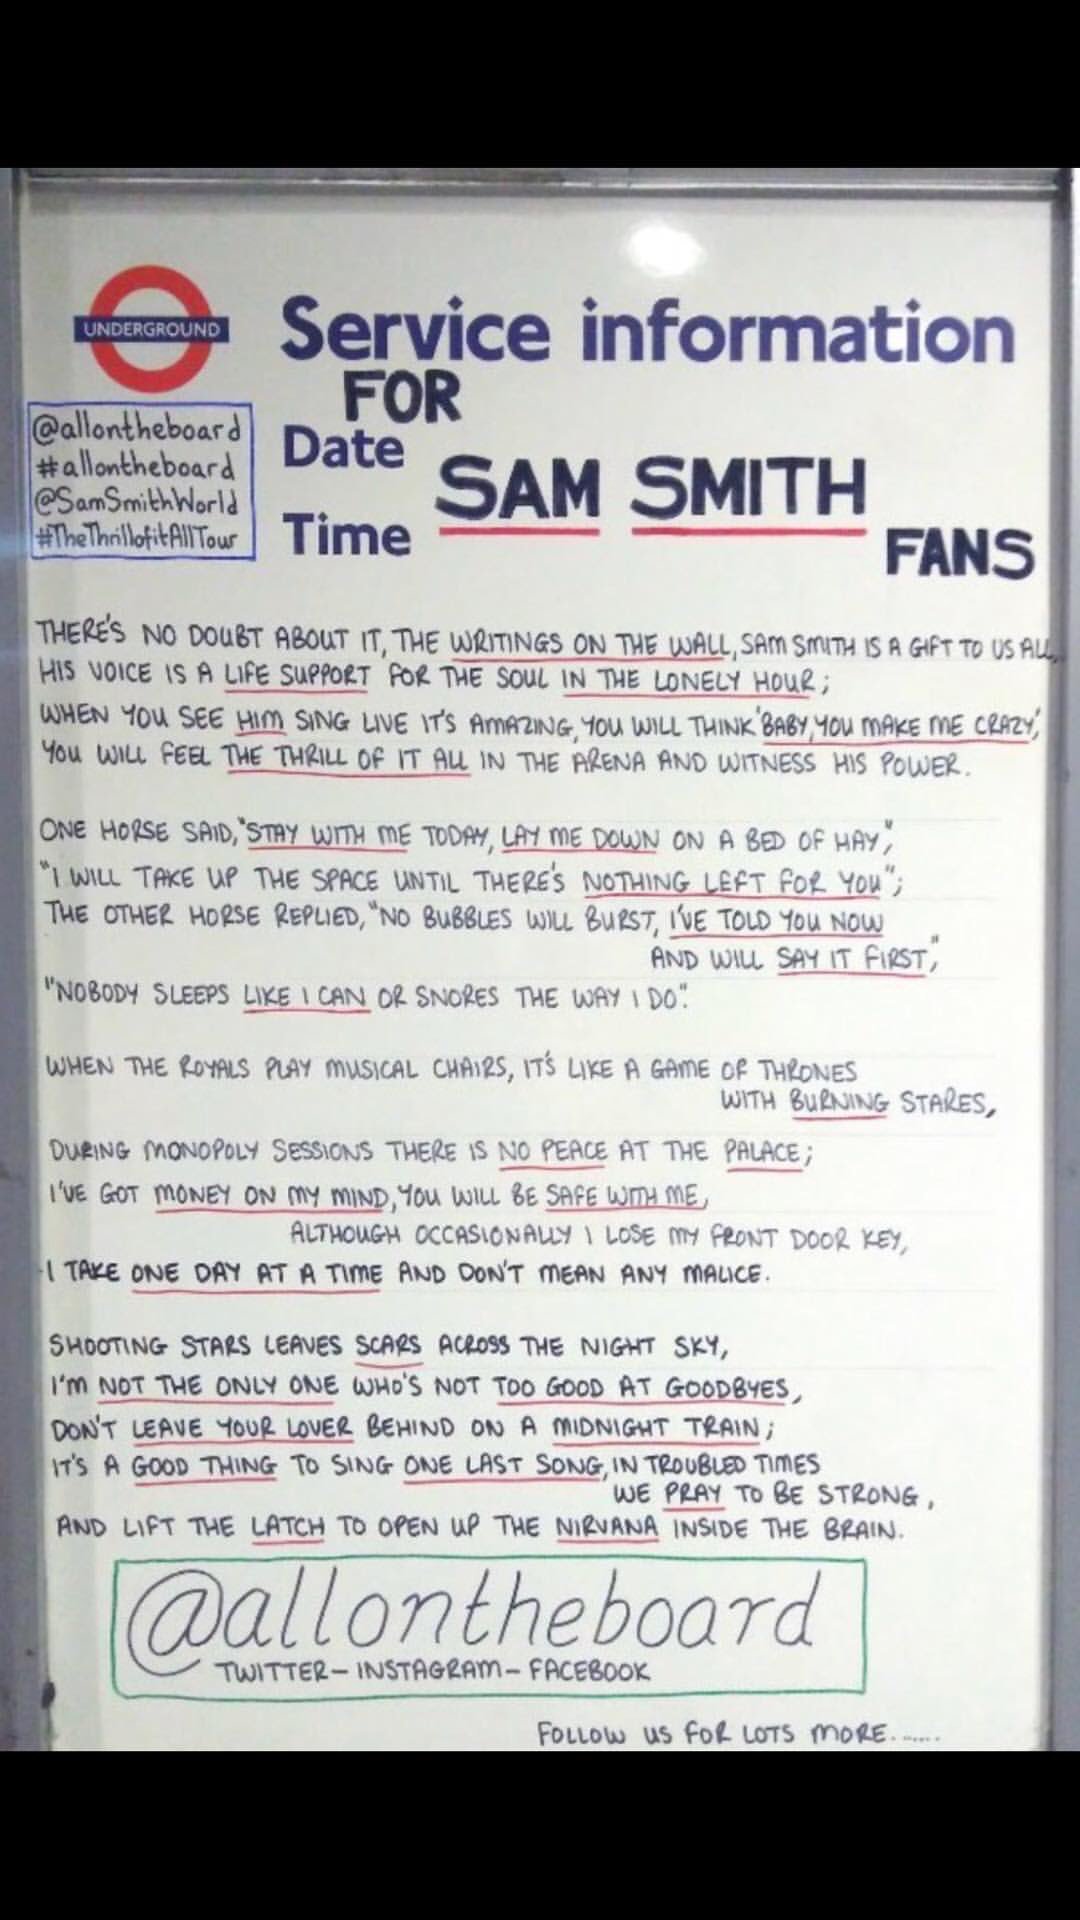 UNDERGROUND
Service information
FOR
@allontheboard
#allontheboard
@SamSmithWorld
#TheThrillofitAllTour
Date
SAM SMITH
Time
FANS
THERE'S NO DOUBT ABOUT IT, THE WRITINGS ON THE WALL, SAM SMITH IS A GIFT TO US ALL,
HIS VOICE IS A LIFE SUPPORT FOR THE SOUL IN THE LONELY HOUR;
WHEN YOU SEE HIM SING LIVE IT'S AMAZING, YOU WILL THINK 'BABY, YOU MAKE ME CRAZY',
YOU WILL FEEL THE THRILL OF IT ALL IN THE ARENA AND WITNESS HIS POWER.
ONE HORSE SAID, "STAY WITH ME TODAY, LAY ME DOWN ON A BED OF HAY",
"I WILL TAKE UP THE SPACE UNTIL THERE'S NOTHING LEFT FOR YOU";
THE OTHER HORSE REPLIED, "NO BUBBLES WILL BURST, I'VE TOLD YOU NOW
AND WILL SAY IT FIRST",
"NOBODY SLEEPS LIKE I CAN OR SNORES THE WAY I DO".
WHEN THE ROYALS PLAY MUSICAL CHAIRS, IT'S LIKE A GAME OF THRONES
WITH BURNING STARES,
DURING MONOPOLY SESSIONS THERE IS NO PEACE AT THE PALACE;
I'VE GOT MONEY ON MY MIND, YOU WILL BE SAFE WITH ME,
ALTHOUGH OCCASIONALLY I LOSE MY FRONT DOOR KEY,
I TAKE ONE DAY AT A TIME AND DON'T MEAN ANY MALICE.
SHOOTING STARS LEAVES SCARS ACROSS THE NIGHT SKY,
I'M NOT THE ONLY ONE WHO'S NOT TOO GOOD AT GOODBYES,
DON'T LEAVE YOUR LOVER BEHIND ON A MIDNIGHT TRAIN;
IT'S A GOOD THING TO SING ONE LAST SONG, IN TROUBLED TIMES
WE PRAY TO BE STRONG,
AND LIFT THE LATCH TO OPEN UP THE NIRVANA INSIDE THE BRAIN.
@allontheboard
TWITTER - INSTAGRAM - FACEBOOK
FOLLOW US FOR LOTS MORE.......